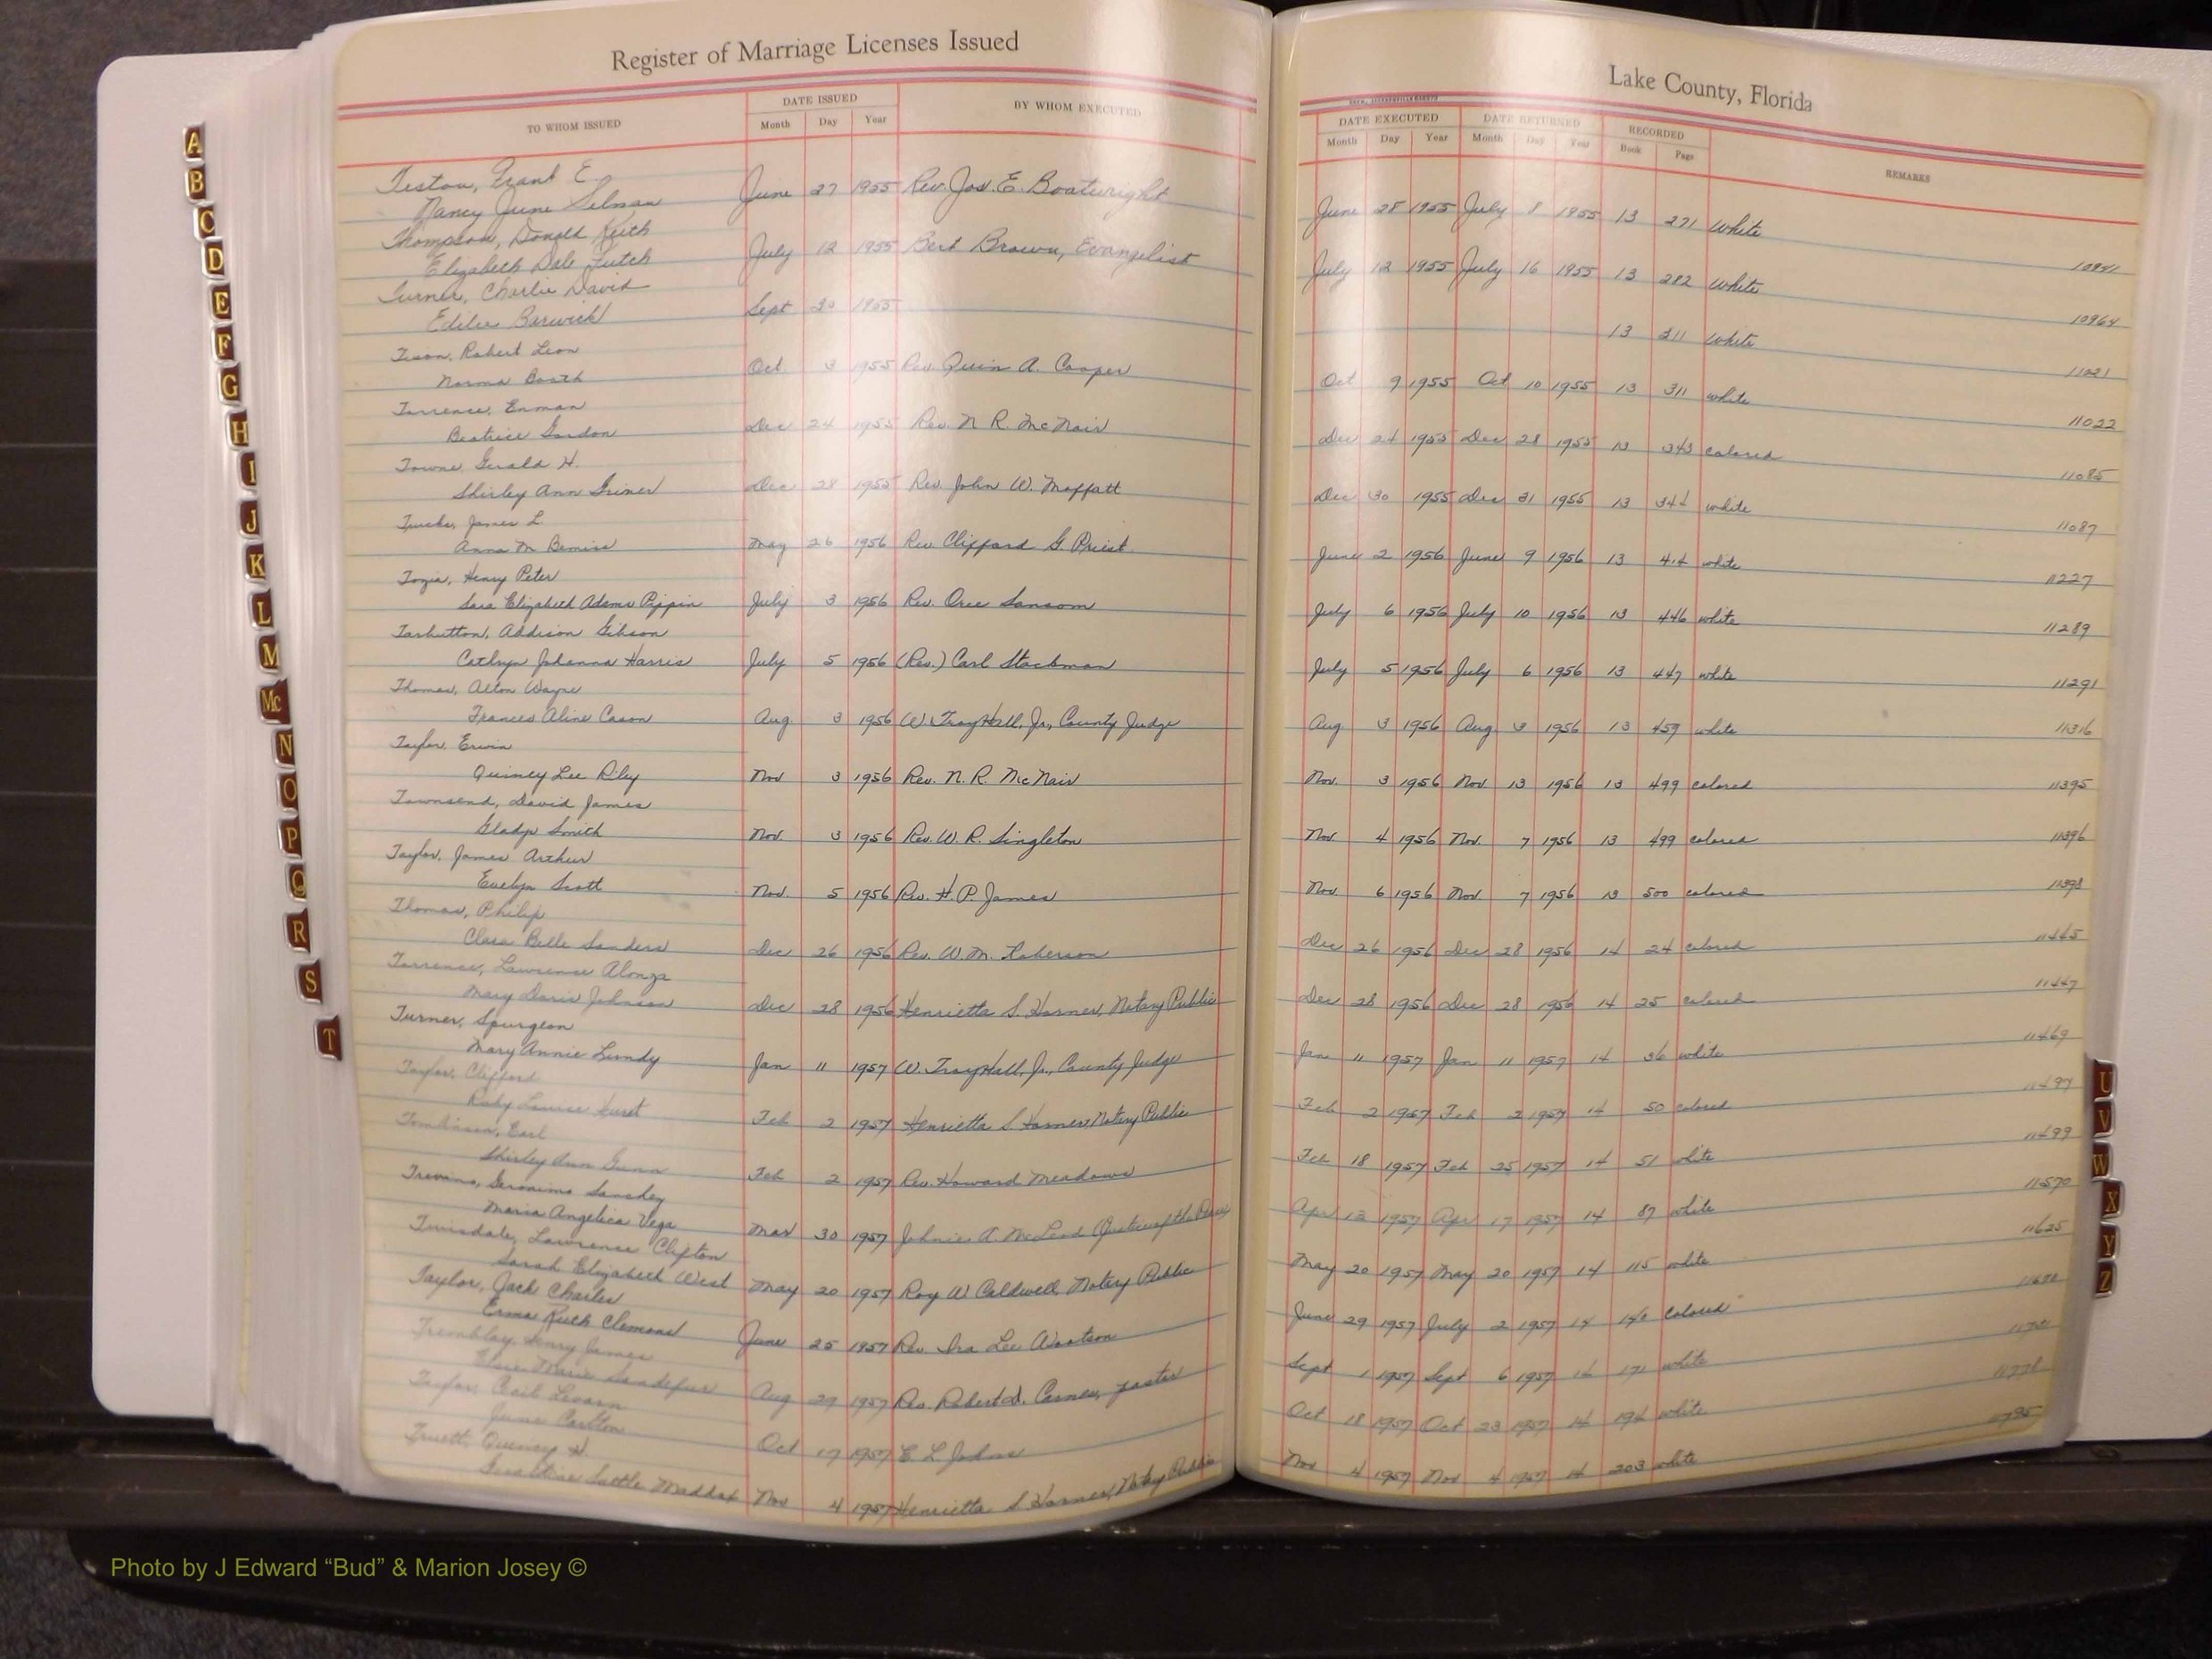 Register of Marriage Licenses Issued
TO WHOM ISSUED DATE ISSUED BY WHOM EXECUTED
Month Day Year
Frank E.
Nancy June Selman June 27 1955 Rev. Jos. E. Boatwright
Thompson, Donald Keith
Elizabeth Dale Futch July 12 1955 Bert Brown, Evangelist
Turner, Charlie David
Barwick Sept 30 1955
Robert Leon
Norma Booth Oct. 3 1955 Rev. Quin A. Cooper
Torrence,
Beatrice Gordon Dec 24 1955 Rev. N R. McNair
Towne, Gerald H.
Shirley Ann Griner Dec 28 1955 Rev. John W. Moffatt
James L
Anna M May 26 1956 Rev. Clifford G. Priest
Henry Peter
Sara Elizabeth Adams Pippin July 3 1956 Rev. Sansom
Tarbutton, Addison Gibson
Cathryn Johanna Harris July 5 1956 (Rev.) Carl Stackman
Thomas, Alton Wayne
Frances Aline Cason Aug 3 1956 W. Troy Hall, Jr., County Judge
Taylor, Erwin
Quincy Lee Riley Nov 3 1956 Rev. N. R. McNair
Townsend, David James
Gladys Smith Nov. 3 1956 Rev. W. R. Singleton
Taylor, James Arthur
Evelyn Scott Nov. 5 1956 Rev. H. P. James
Thomas, Philip
Clara Belle Sanders Dec 26 1956 Rev. W. M. Roberson
Torrence, Lawrence Alonza
Mary Doris Johnson Dec 28 1956 Henrietta S. Harner, Notary Public
Turner, Spurgeon
Mary Annie Lundy Jan 11 1957 W. Troy Hall, Jr., County Judge
Taylor, Clifford
Ruby Louise Hurst Feb 2 1957 Henrietta S Harner, Notary Public
Tomlinson, Earl
Shirley Ann Gunn Feb 2 1957 Rev. Howard Meadows
Trevino, Geronimo Sanchez
Maria Angelica Vega Mar 30 1957 Johnie A. McLeod Justice of the Peace
Lawrence Clifton
Sarah Elizabeth West May 20 1957 Roy W Caldwell, Notary Public
Taylor, Jack Charles
Erma Ruth Clemons June 25 1957 Rev. Ira Lee Wootson
Tremblay, Henry James
Marie Sandefur Aug 29 1957 Rev. Robert d. Carnes, pastor
Taylor, Cecil
June Carlton Oct 17 1957 E L Johns
Truett, Quincy H.
Geraldine Suttle Maddox Nov 4 1957 Henrietta S Harner, Notary Public
Lake County, Florida
DATE EXECUTED DATE RETURNED RECORDED REMARKS
Month Day Year Month Day Year Book Page
June 28 1955 July 8 1955 13 271 White 10941
July 12 1955 July 16 1955 13 282 White 10964
13 311 White 11021
Oct 9 1955 Oct 10 1955 13 311 white 11022
Dec 24 1955 Dec 28 1955 13 343 colored 11085
Dec 30 1955 Dec 31 1955 13 344 white 11087
June 2 1956 June 9 1956 13 414 white 11227
July 6 1956 July 10 1956 13 446 white 11289
July 5 1956 July 6 1956 13 447 white 11291
Aug 3 1956 Aug 3 1956 13 459 white 11316
Nov. 3 1956 Nov. 13 1956 13 499 colored 11395
Nov. 4 1956 Nov. 7 1956 13 499 colored 11396
Nov. 6 1956 Nov. 7 1956 13 500 colored 11398
Dec 26 1956 Dec 28 1956 14 24 colored 11445
Dec 28 1956 Dec 28 1956 14 25 colored 11447
Jan 11 1957 Jan 11 1957 14 36 white 11469
Feb 2 1957 Feb 2 1957 14 50 colored 11497
Feb 18 1957 Feb 25 1957 14 51 white 11499
Apr 13 1957 Apr 17 1957 14 87 white 11570
May 20 1957 May 20 1957 14 115 white 11625
June 29 1957 July 2 1957 14 140 colored
Sept 1 1957 Sept 6 1957 14 171 white
Oct 18 1957 Oct 23 1957 14 194 white
Nov 4 1957 Nov 4 1957 14 203 white 11795
A
B
C
D
E
F
G
H
I
J
K
L
M
Mc
N
O
P
Q
R
S
T
U
V
W
X
Y
Z
Photo by J Edward “Bud” & Marion Josey ©